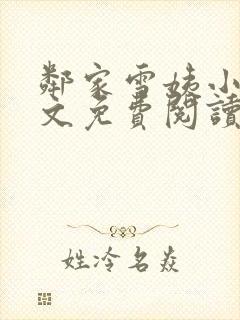 鄰家雪姨小
文免費閱讀
姓冷名焱